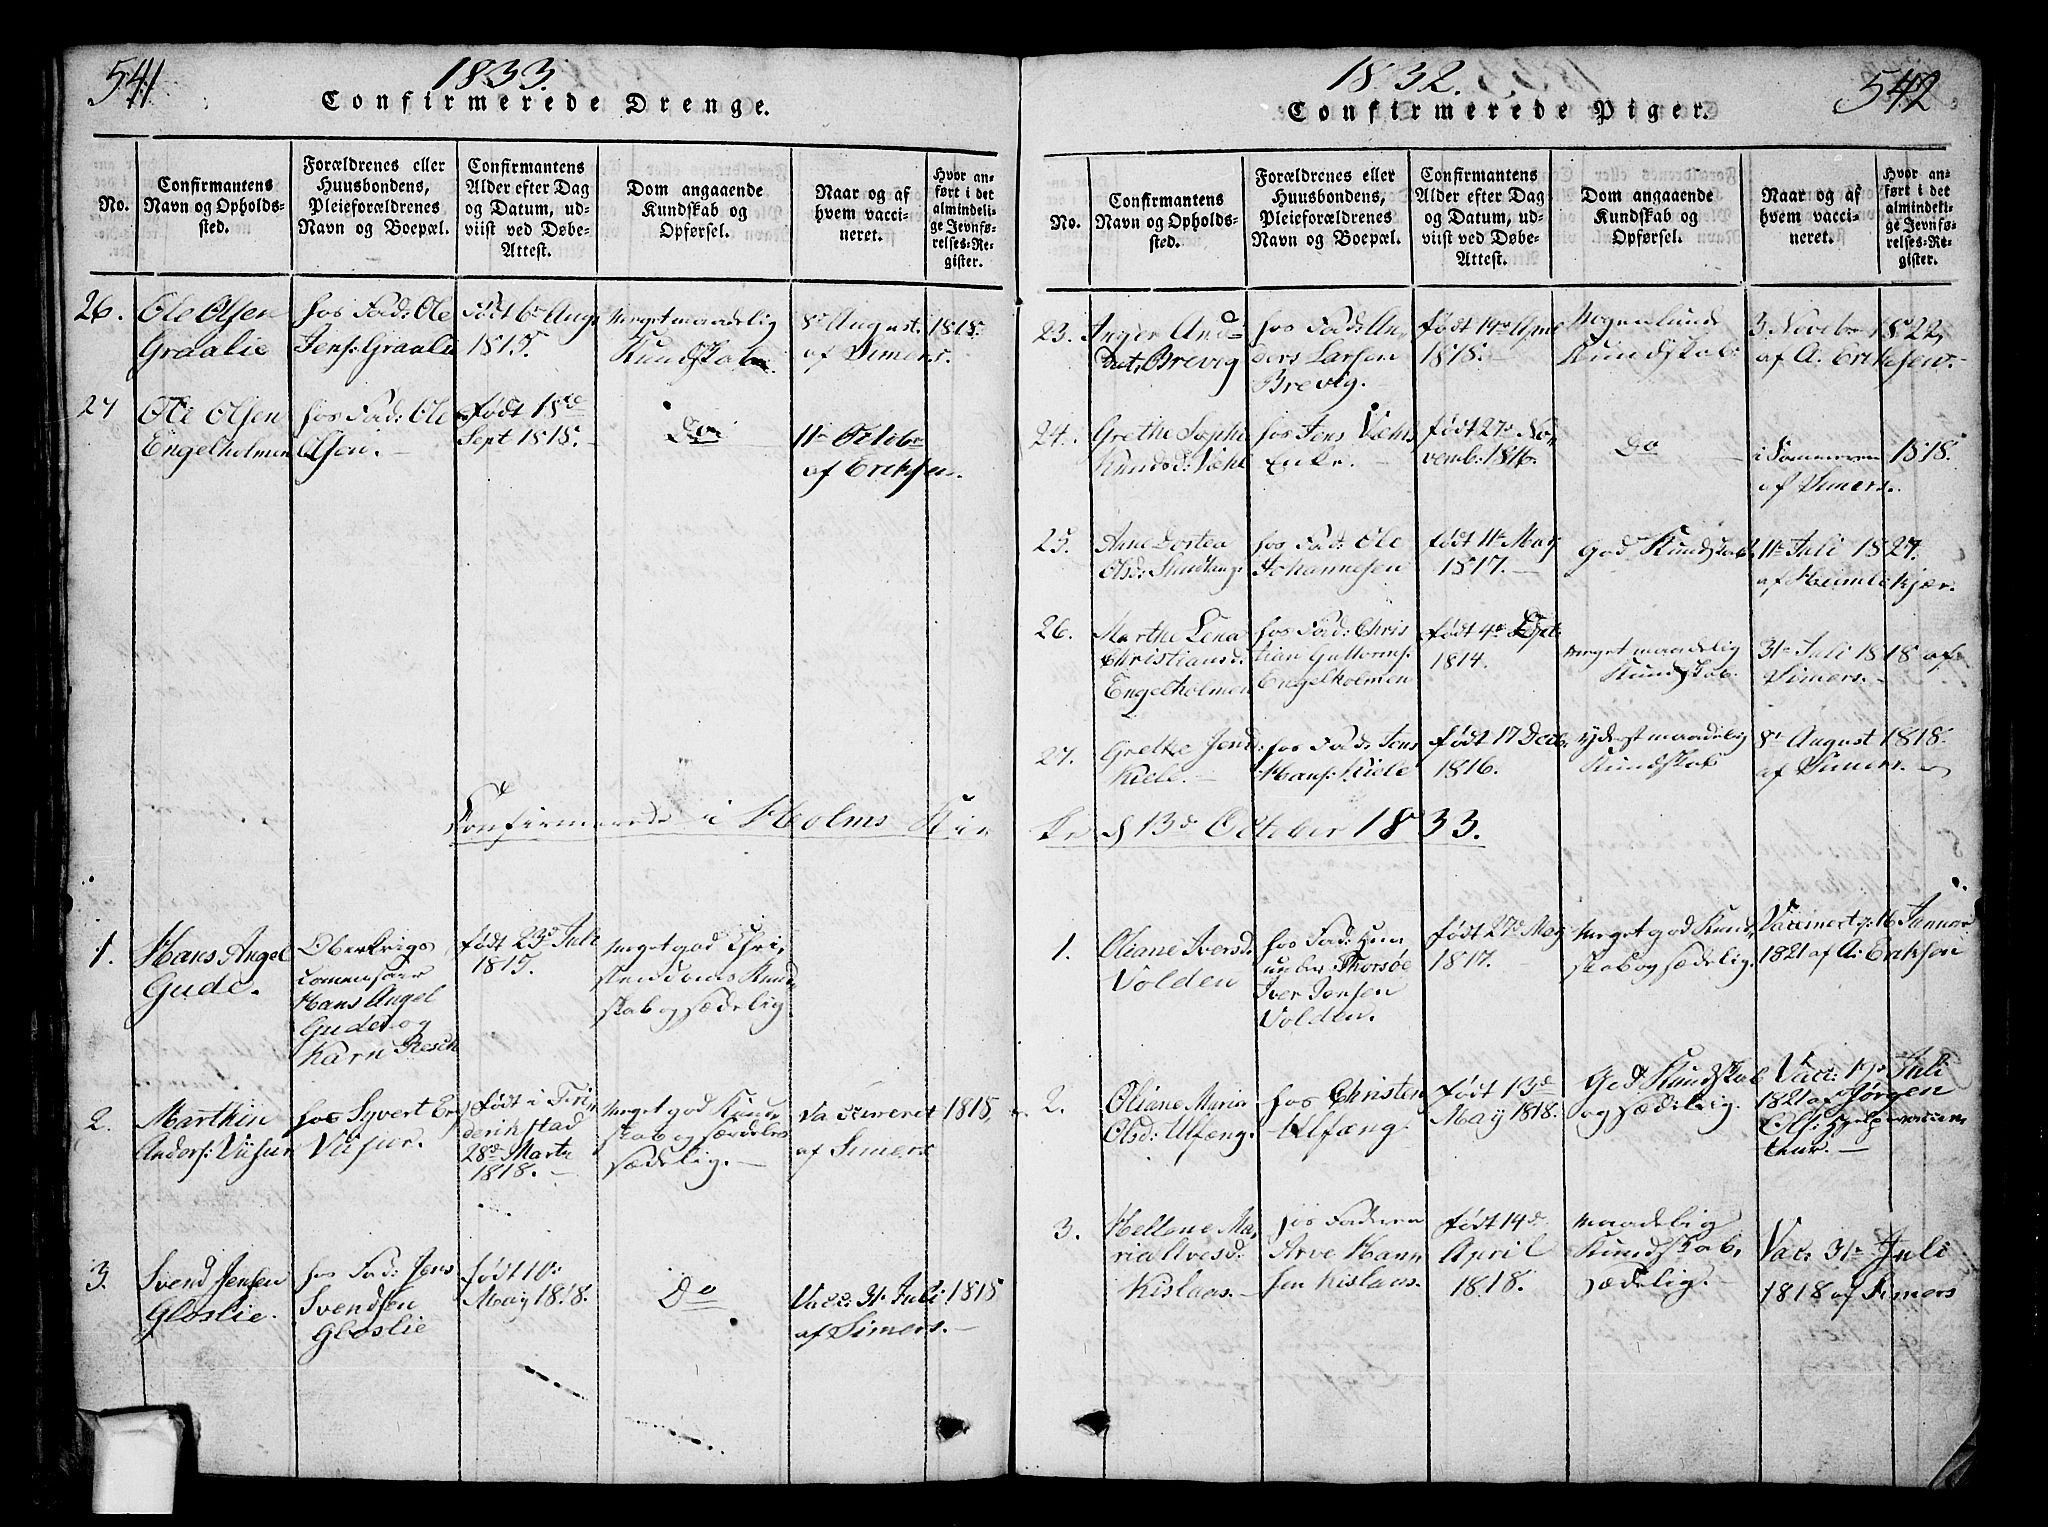 541
1833.
Confirmerede Drenge.
No.
Confirmantens
Navn og Opholds-
sted.
Forældrenes eller
Huusbondens,
Pleieforældrenes
Navn og Boepæl.
Confirmantens
Alder efter Dag
og Datum, ud-
viist ved Døbe-
Attest.
Dom angaaende
Kundskab og
Opførsel.
Naar og af
hvem vacci-
neret.
Hvor an-
ført i det
almindeli-
ge Jevnfø-
relses-Re-
gister.
26.
Ole Olsen
Graalie
hos Fad: Ole
Jens: Graalie
født 6 Aug
1815.
Meget maadelig
Kundskab
8 August 1818.
af Simers.
27
Ole Olsen
Engelholmen
hos Fad: Ole
Olsen.
født 18de
Sept 1818.
Do
11 Octobr
af Eriksen.
Confirmerede i Holms Kir
1.
Hans Angel
Gude.
Oberkrigs
commesair
Hans Angel
Gude og
Karn Resch
født 23d Juli
1815.
Meget god Chri,
stendoms Kund
skab og sædelig.
2.
Marthin
Anders: Viisur
hos Syvert
Viisur.
født i Fri,
derikstad
28d Marts
1818.
Meget god Kund
skab og særdeles
sædelig.
Vaccineret 1818,
af Simers
3.
Svend Jensen
Gloslie.
hos Fad: Jens
Svendsen
Gloslie
født 10
May 1818.
Do
Vacc: 31 Juli 1818
af Simers.
1832.
542
Confirmerede Piger.
No.
Confirmantens
Navn og Opholds-
sted.
Forældrenes eller
Huusbondens,
Pleieforældrenes
Navn og Boepæl.
Confirmantens
Alder efter Dag
og Datum, ud-
viist ved Døbe-
Attest.
Dom angaaende
Kundskab og
Opførsel.
Naar og af
hvem vacci-
neret.
Hvor an-
ført i det
almindeli-
ge Jevnfø-
relses-Re-
gister.
23.
Inger And
dat, Brevig
hos Fad: An,
ders Larsen
Brevig.
født 14
1818.
Nogenlunde
Kundskab
3 Novebr 1822,
af A. Eriksen.
24.
Grethe Sophe
Knudsd: Væhl
hos Jens Væhls
Enke.
født 27d No,
vemb: 1816.
Do
i Sommeren 1818.
af Simers.
25.
Anne Dortea
Olsd:
hos Fad: Ole
Johannesen
født 11 May
1817.
God Kundskab
11 Juli 1827.
af Heimlekjær.
26.
Marthe Lena
Christiansd:
Engelholmen
hos Fad: Chris
tian Guttorms:
Engelholmen
født 4d Sept:
1814.
Meget maadelig
Kundskab.
31 Juli 1818 af
Simers.
27.
Grethe Jensd:
Kiele.
hos Fad: Jens
Hans: Kiele
født 17 Decb.
1816.
yderst maadelig
Kundskab
8 August 1818.
af Simers.
ke d 13d October 1833.
1.
Oliane Iversd.
Volden
hos Fad: Huu
Thorsøe
Iver Jensen
Volden.
født 27d May
1817.
Meget god Kund,
skab og sædelig.
Vaccinert 16 Januar
1821 af A: Eriksen
2.
Oliane Maria
Olsd: Ulfæng.
hos Christen
Ulfæng
født 13de
May 1818.
God Kundskab
og sædelig.
Vacc: Juli
1821 af Jørgen
Ols:
3.
Hellene Ma,
ria Arvesd:
Kislaas.
hos Faderen
Arve Hann
sen Kislaas.
født 14d
April
1818.
maadelig
Kundskab,
sædelig.
Vac: 31 Juli
1818 af Simers